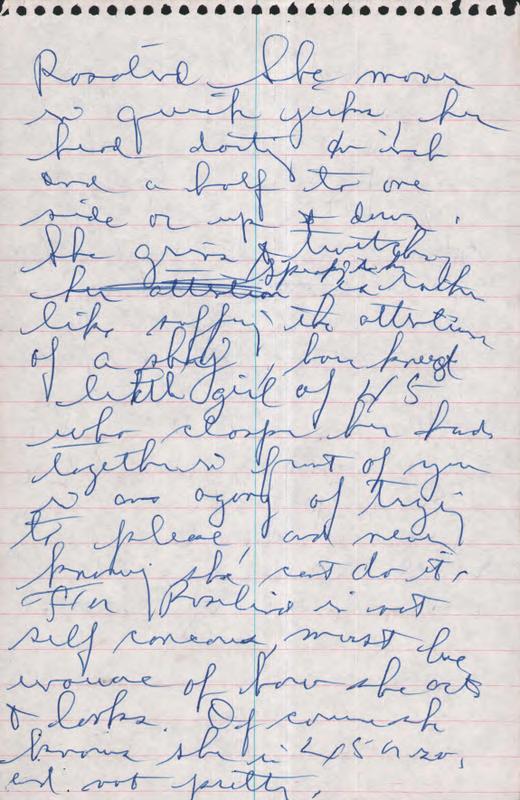 Rosalind. She moves
in quick jerks, her
head darting an inch
and a half to one
side or up & down.
She grins & twitches
her attention is rather
like suffering the attention
of a shy, bow kneed
little girl of 45
who clasps her hands
together in front of you
in an agony of trying
to please, and never
knowing she can't do it.
Rosalind is not
self conscious, must be
unaware of how she acts
& looks. Of course she
knows she is 45 or so,
and not pretty.